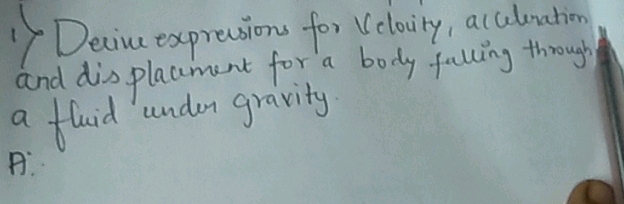 1) Derive expressions for Velocity, acceleration
and displacement for a body falling through
a fluid under gravity.
A: